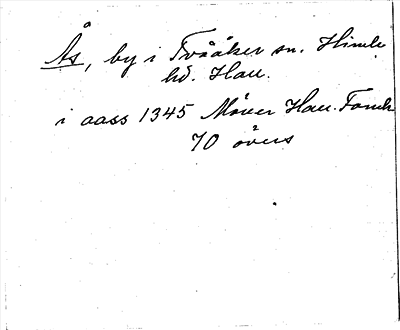 Ås, by i Tvååker sn. Himle
hd. Hall.
i aass 1345 Hall. Famn
70 övers